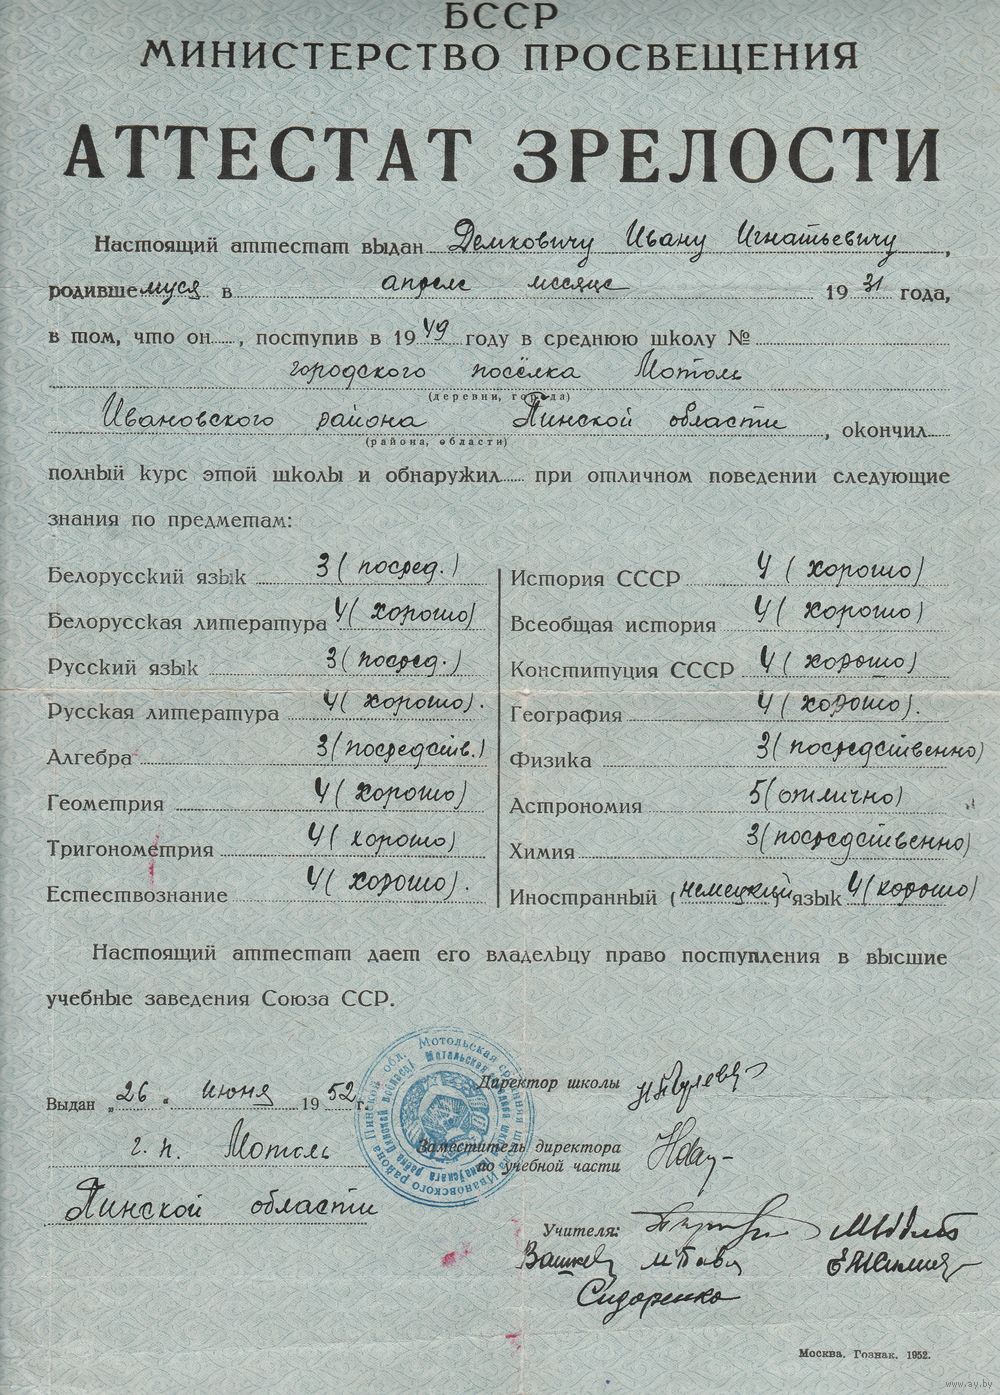 БССР
МИНИСТЕРСТВО ПРОСВЕЩЕНИЯ
АТТЕСТАТ ЗРЕЛОСТИ
Настоящий аттестат выдан Демковичу Ивану Игнатьевичу,
родившемуся в апреле месяце 1931 года,
в том, что он....., поступив в 1949 году в среднюю школу №
городского посёлка Мотоль
(деревни, города)
Ивановского района Пинской области, окончил
(района, области)
полный курс этой школы и обнаружил..... при отличном поведении следующие
знания по предметам:
Белорусский язык 3 (посред.)
Белорусская литература 4 (хорошо)
Русский язык 3 (посред.)
Русская литература 4 (хорошо).
Алгебра 3 (посредств.)
Геометрия 4 (хорошо)
Тригонометрия 4 (хорошо)
Естествознание 4 (хорошо).
История СССР 4 (хорошо)
Всеобщая история 4 (хорошо)
Конституция СССР 4 (хорошо)
География 4 (хорошо).
Физика 3 (посредственно)
Астрономия 5 (отлично)
Химия 3 (посредственно)
Иностранный (немецкий) язык 4 (хорошо)
Настоящий аттестат дает его владельцу право поступления в высшие
учебные заведения Союза ССР.
Выдан „26“ июня 1952 г.
г. п. Мотоль
Пинской области
Мотольская средняя школа Ивановского района Пинской обл.
Директор школы
Заместитель директора
по учебной части
Учителя:
Сидоренко
Москва. Гознак. 1952.
www.ay.by